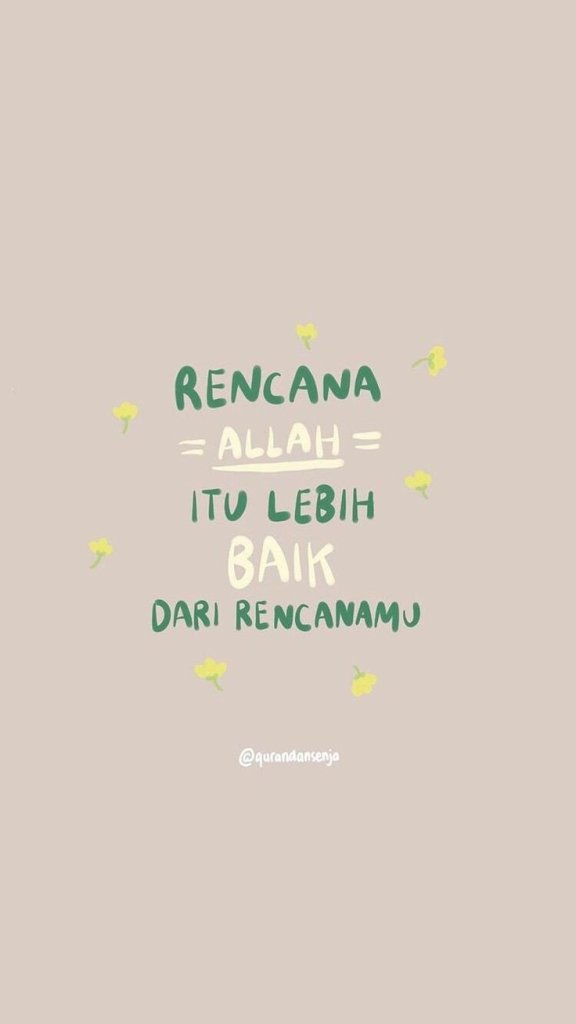 RENCANA
= ALLAH =
ITU LEBIH
BAIK
DARI RENCANAMU
@qurandansenja